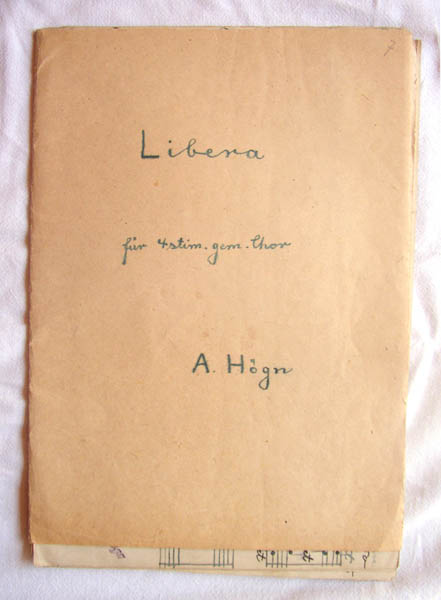 Libera
für 4stim. gem. Chor
A. Högn